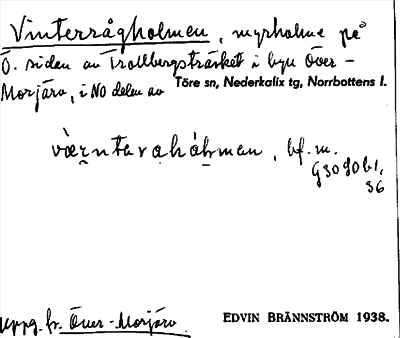 Vinterrågholmen, myrholme på
Ö. sidan av Trollbergsträsket i byn Över-
Morjärv, i NO delen av Töre sn, Nederkalix tg, Norrbottens l.
bf. m.
G3090b1,
36
uppg. fr. Över-Morjärv.
EDVIN BRÄNNSTRÖM 1938.